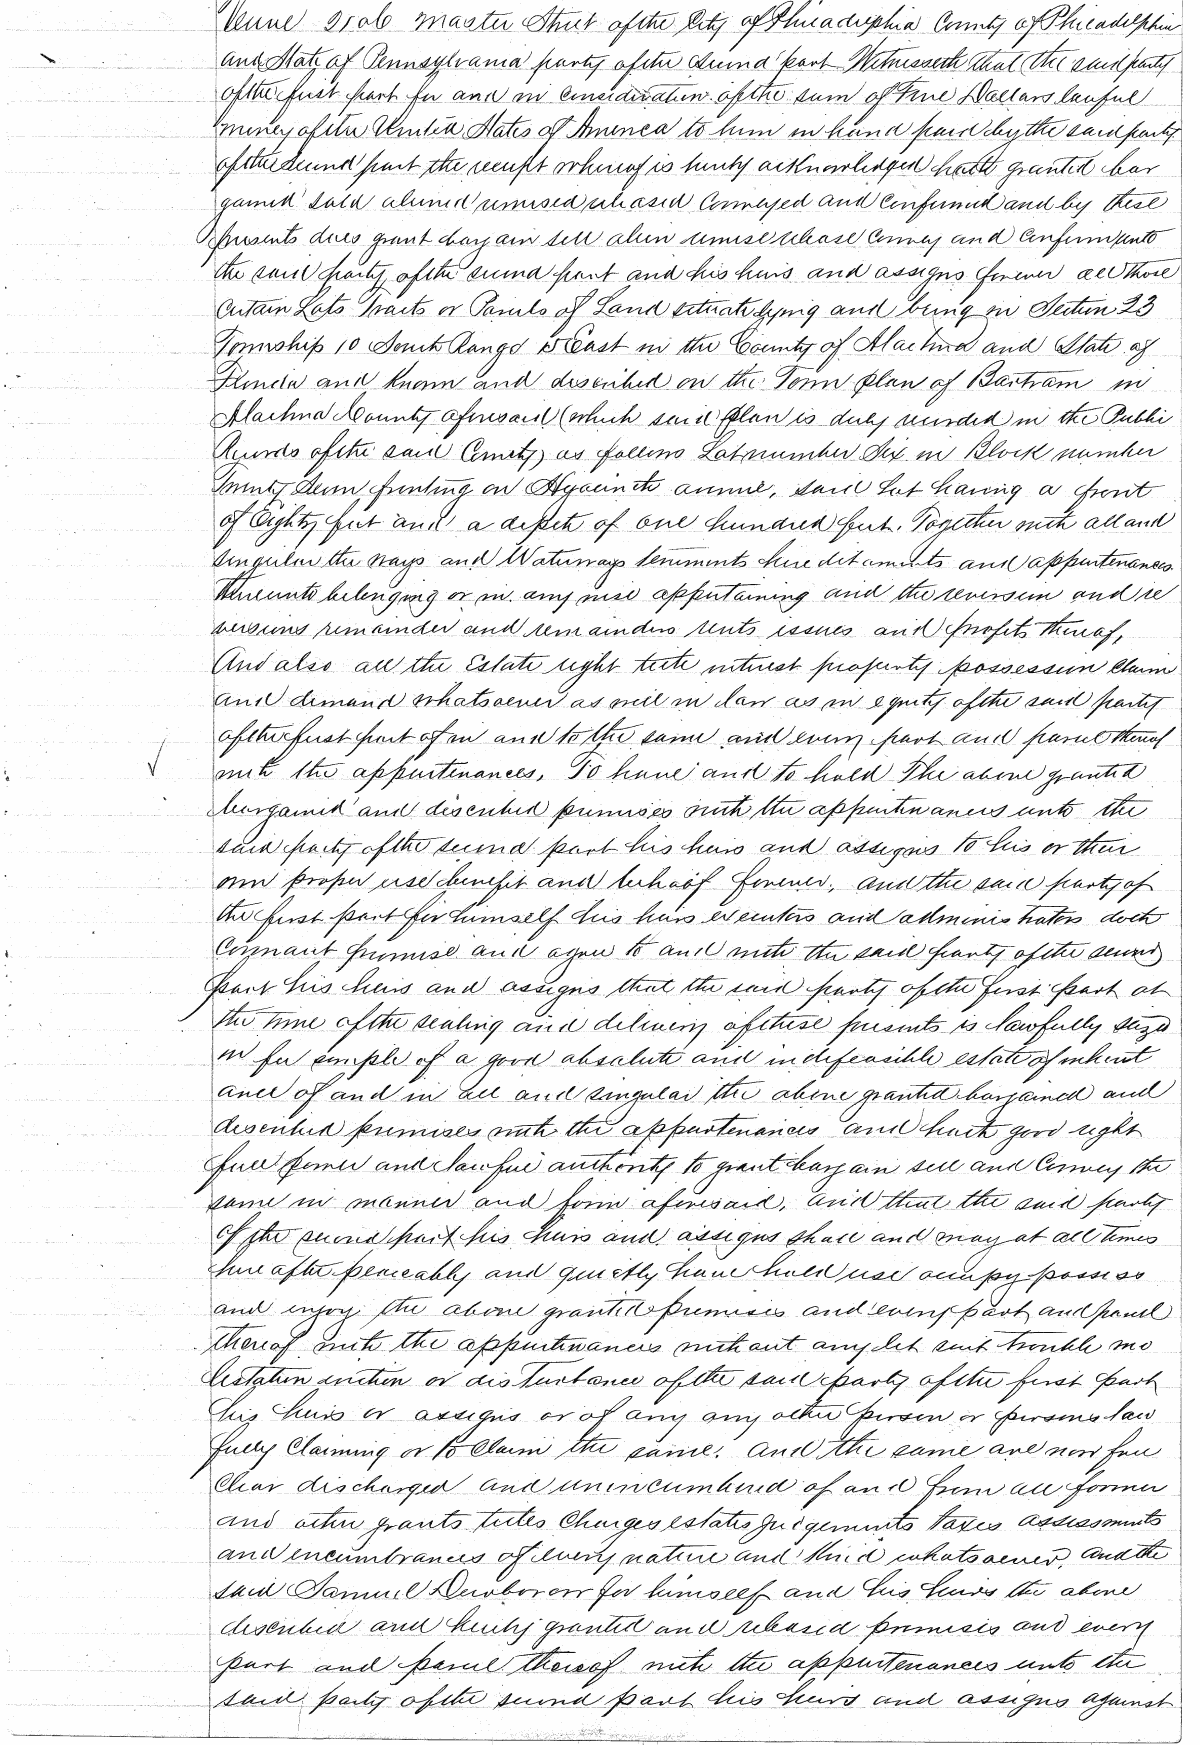 Venue 3106 Master Street of the City of Philadelphia County of Philadelphia
and State of Pennsylvania party of the second part Witnesseth that the said party
of the first part for and in consideration of the sum of Five Dollars lawful
money of the United States of America to him in hand paid by the said party
of the second part the receipt whereof is hereby acknowledged hath granted bar
gained sold aliened remised released Conveyed and Confirmed and by these
presents does grant bargain sell alien remise release Convey and Confirm unto
the said party of the second part and his heirs and assigns forever all those
Certain Lots Tracts or Parcels of Land situate lying and being in Section 23
Township 10 South Range 15 East in the County of Alachua and State of
Florida and known and described on the Town plan of Bartram in
Alachua County aforesaid (which said plan is duly recorded in the Public
Records of the said County) as follows Lot number Six in Block number
Twenty Seven fronting on Hyacinth avenue, said Lot having a front
of Eighty feet and a depth of one hundred feet. Together with all and
singular the ways and Waterways tenements hereditaments and appurtenances
thereunto belonging or in any wise appertaining and the reversion and re
versions remainder and remainders rents issues and profits thereof,
And also all the Estate right title interest property possession Claim
and demand whatsoever as well in law as in equity of the said party
of the first part of in and to the same and every part and parcel thereof
with the appurtenances. To have and to hold The above granted
bargained and described premises with the appurtenances unto the
said party of the second part his heirs and assigns to his or their
own proper use benefit and behoof forever, and the said party of
the first part for himself his heirs executors and administrators doth
Covenant promise and agree to and with the said party of the second
part his heirs and assigns that the said party of the first part at
the time of the sealing and delivery of these presents is lawfully seized
in fee simple of a good absolute and indefeasible estate of inherit
ance of and in all and singular the above granted bargained and
described premises with the appurtenances and hath good right
full power and lawful authority to grant bargain sell and Convey the
same in manner and form aforesaid, and that the said party
of the second part his heirs and assigns shall and may at all times
hereafter peaceably and quietly have hold use occupy possess
and enjoy the above granted premises and every part and parcel
thereof with the appurtenances without any let suit trouble mo
lestation eviction or disturbance of the said party of the first part
his heirs or assigns or of any any other person or persons law
fully Claiming or to Claim the same. and the same are now free
Clear discharged and unincumbered of and from all former
and other grants titles Charges estates judgements taxes assessments
and encumbrances of every nature and kind whatsoever, and the
said Samuel for himself and his heirs the above
described and hereby granted and released premises and every
part and parcel thereof with the appurtenances unto the
said party of the second part his heirs and assigns against